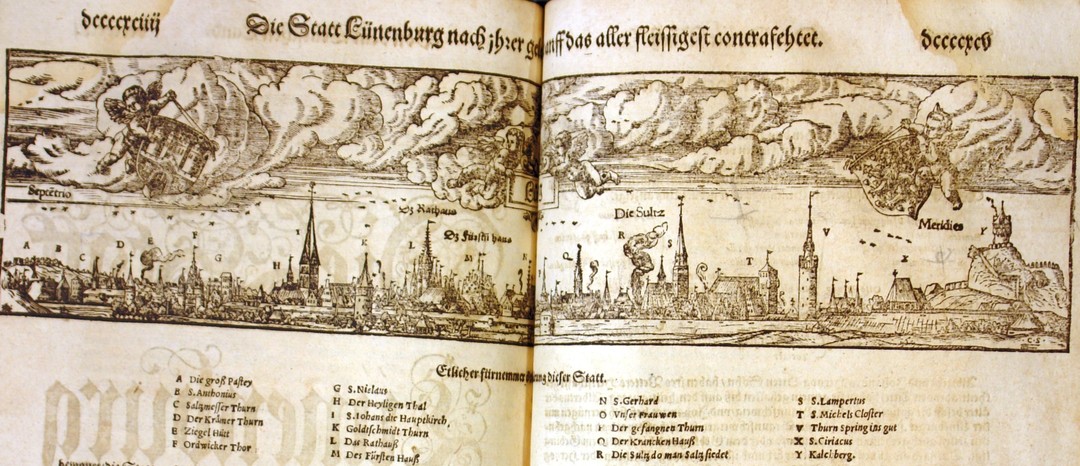 dccccxciiij
Die Statt Lünenburg nach jhrer auff das aller fleissigest contrafehtet.
dccccxcv
Septētrio
Dz Rathaus
Dz Fürstē haus
Die Sultz
Meridies
A B C D E F G H I K L M N
Q R S T V X Y
C S
Etlicher fürnemmer dieser Statt.
A Die groß Pastey
B S. Anthonius
C Saltzmesser Thurn
D Der Krämer Thurn
E Ziegel Hütt
F Ordwicker Thor
G S. Niclaus
H Der Heyligen Thal
I S. Iohans die Haupekirch,
K Goldschmidt Thurn
L Das Rathauß
M Des Fürsten Hauß
N S. Gerhard
O Vnser Frauwen
P Der gefangnen Thurn
Q Der Krancken Hauß
R Die Sultz do man Saltz siedet
S S. Lampertus
T S. Michels Closter
V Thurn Spring ins gut
X S. Ciriacus
Y Kalckberg.